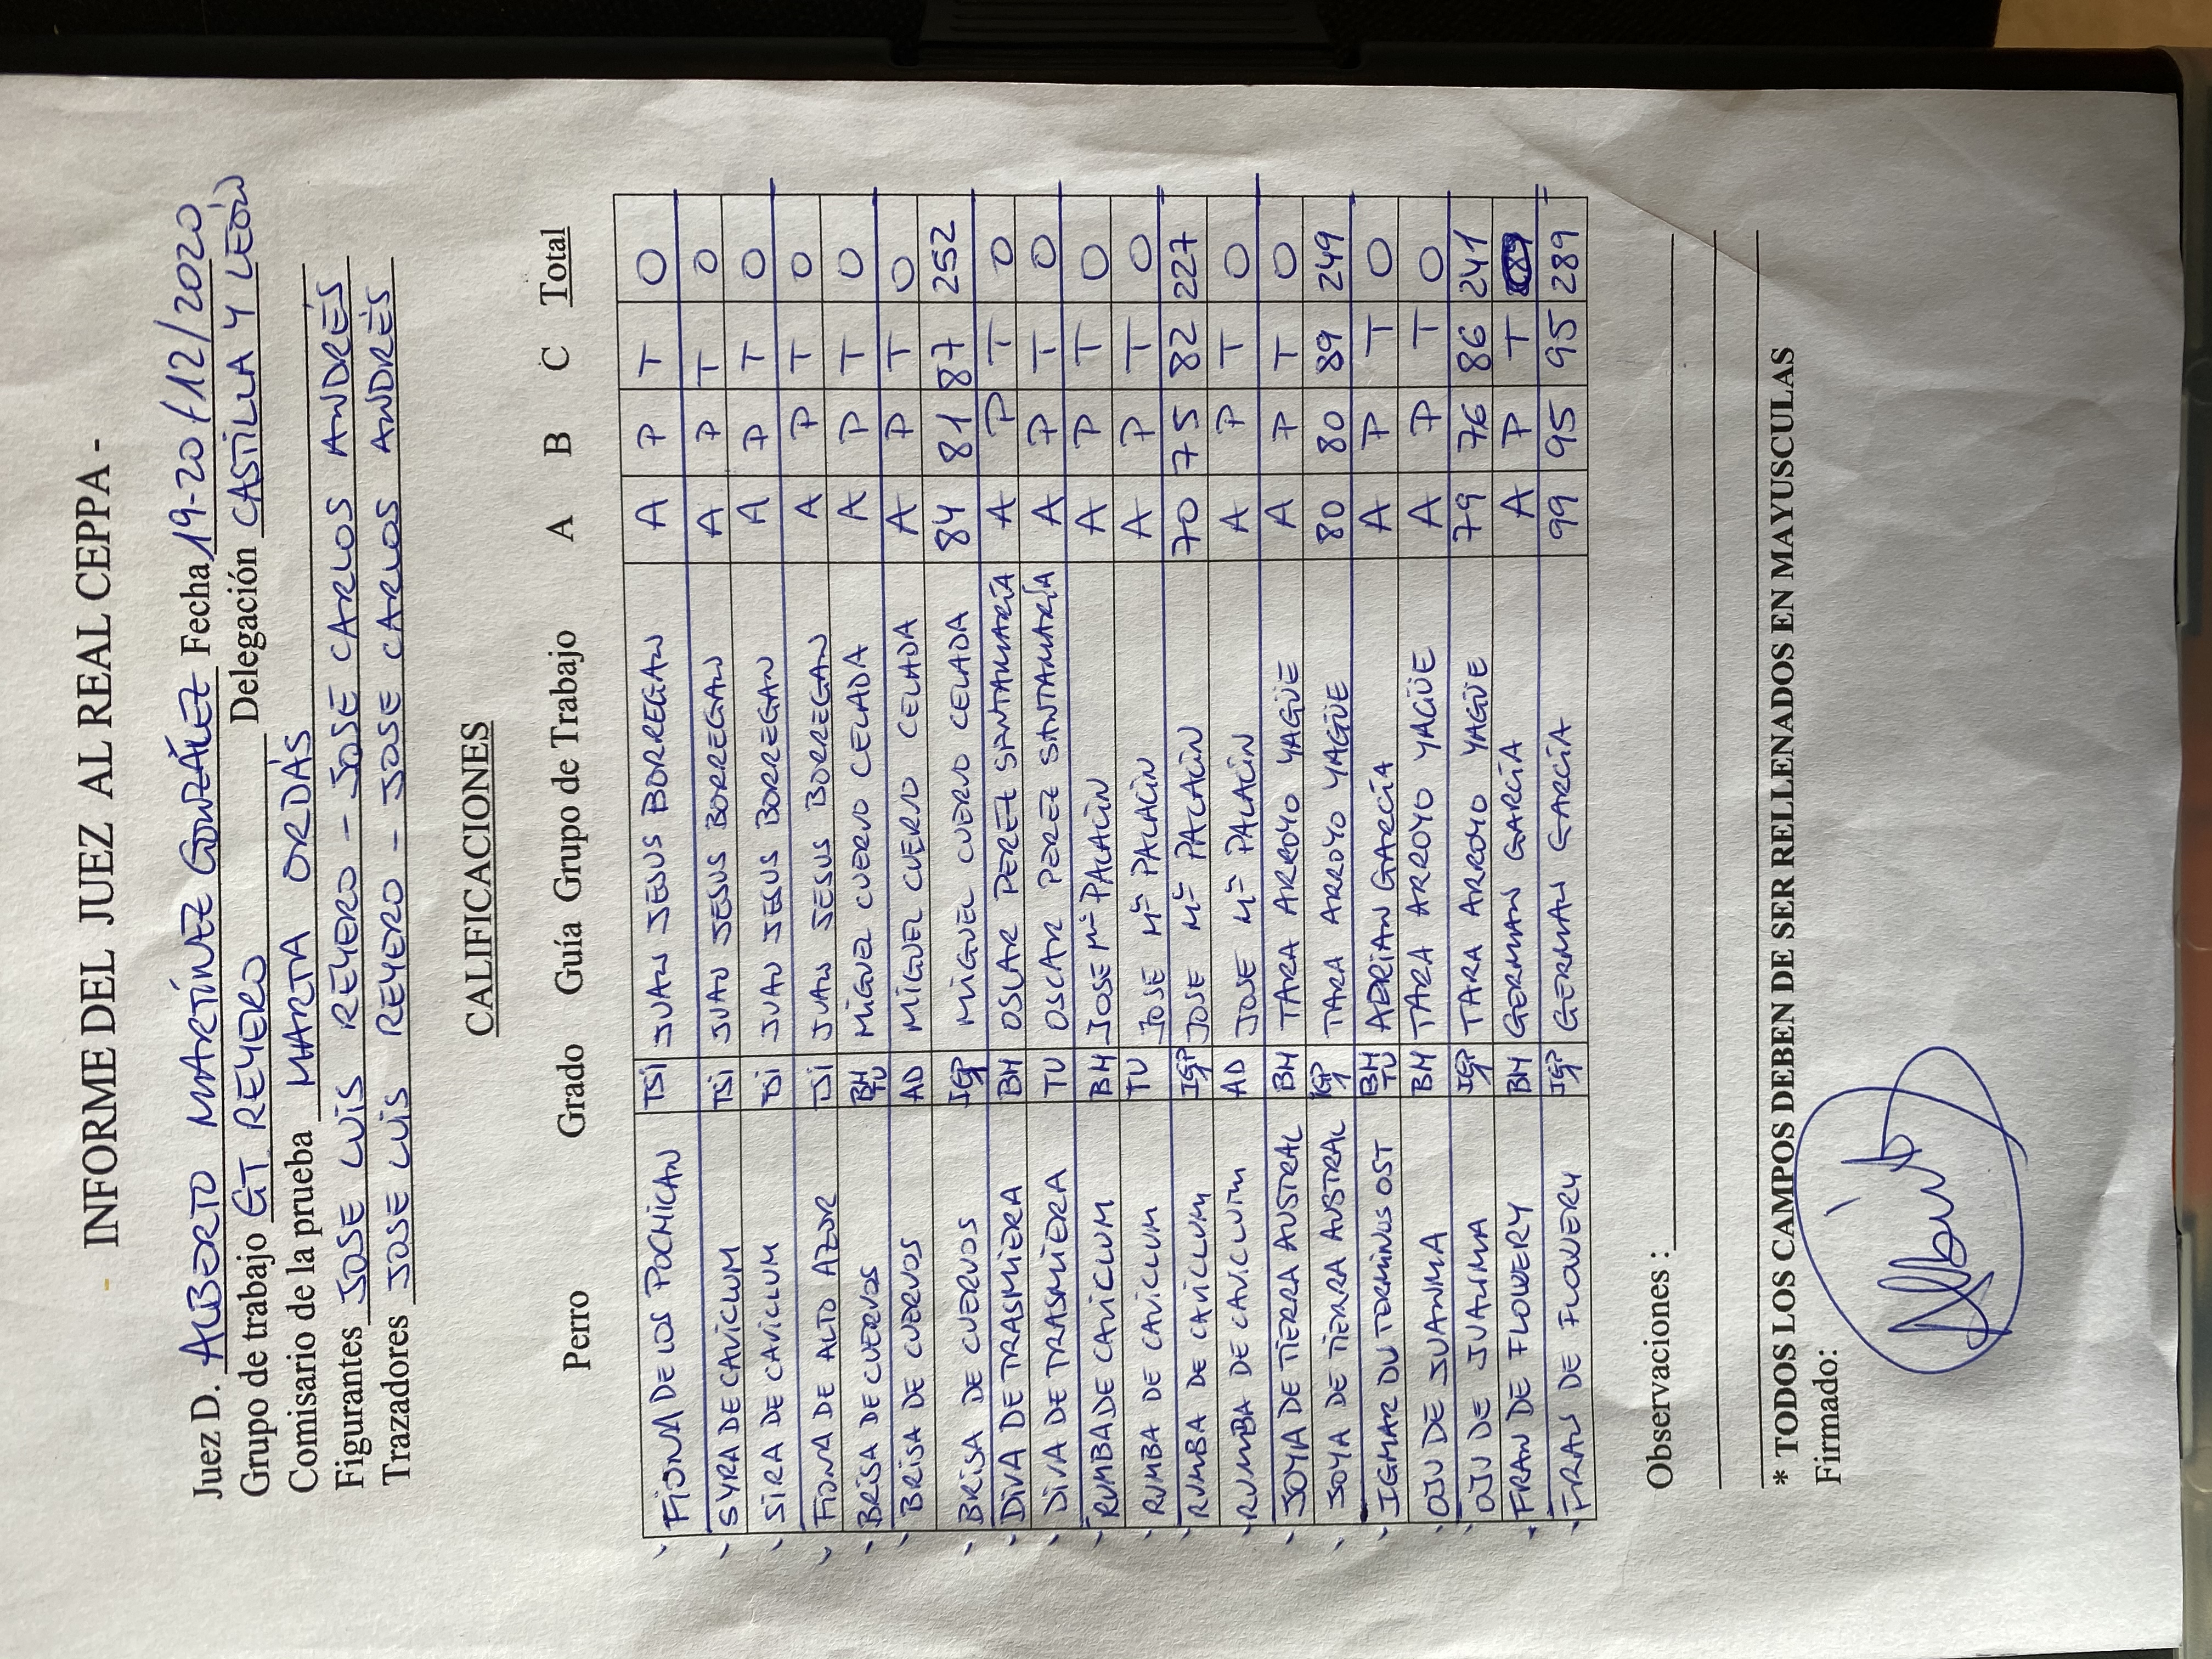 - INFORME DEL JUEZ AL REAL CEPPA -
Juez D. ALBERTO MARTÍNEZ GONZÁLEZ Fecha 19-20/12/2020
Grupo de trabajo GT REYERO Delegación CASTILLA Y LEÓN
Comisario de la prueba MARTA ORDÁS
Figurantes JOSE LUIS REYERO - JOSE CARLOS ANDRÉS
Trazadores JOSE LUIS REYERO - JOSE CARLOS ANDRÉS
CALIFICACIONES
Perro Grado Guía Grupo de Trabajo A B C Total
FIONA DE LOS POCHICAN TSI JUAN JESUS BORREGAN A P T 0
SYRA DE CAVICLUM TSI JUAN JESUS BORREGAN A P T 0
SIRA DE CAVICLUM TSI JUAN JESUS BORREGAN A P T 0
FIONA DE ALTO AZOR TSI JUAN JESUS BORREGAN A P T 0
BRISA DE CUERVOS BH TU MIGUEL CUERVO CELADA A P T 0
BRISA DE CUERVOS AD MIGUEL CUERVO CELADA A P T 0
BRISA DE CUERVOS IGP MIGUEL CUERVO CELADA 84 81 87 252
DIVA DE TRASMIERA BH OSCAR PEREZ SANTAMARÍA A P T 0
DIVA DE TRASMIERA TU OSCAR PEREZ SANTAMARÍA A P T 0
RUMBA DE CAVICLUM BH JOSE Mª PALACÍN A P T 0
RUMBA DE CAVICLUM TU JOSE Mª PALACÍN A P T 0
RUMBA DE CAVICLUM IGP JOSE Mª PALACÍN 70 75 82 227
RUMBA DE CAVICLUM AD JOSE Mª PALACÍN A P T 0
JOYA DE TIERRA AUSTRAL BH TARA ARROYO YAGÜE A P T 0
JOYA DE TIERRA AUSTRAL IGP TARA ARROYO YAGÜE 80 80 89 249
IGMAR DU TERMINUS OST BH TU ADRIAN GARCÍA A P T 0
OJU DE JUANMA BH TARA ARROYO YAGÜE A P T 0
OJU DE JUANMA IGP TARA ARROYO YAGÜE 79 76 86 241
FRAN DE FLOWERY BH GERMAN GARCÍA A P T
FRAN DE FLOWERY IGP GERMAN GARCÍA 99 95 95 289
Observaciones :
* TODOS LOS CAMPOS DEBEN DE SER RELLENADOS EN MAYUSCULAS
Firmado: